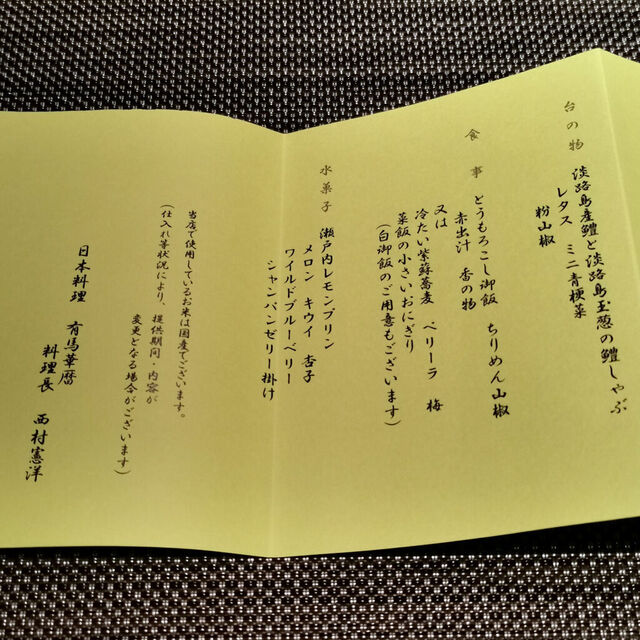 台の物 淡路島産鱧と淡路島玉葱の鱧しゃぶ
レタス ミニ青梗菜
粉山椒
食事 とうもろこし御飯 ちりめん山椒
赤出汁 香の物
又は
冷たい紫蘇蕎麦 ベリーラ 梅
菜飯の小さいおにぎり
(白御飯のご用意もございます)
水菓子 瀬戸内レモンプリン
メロン キウイ 杏子
ワイルドブルーベリー
シャンパンゼリー掛け
当店で使用しているお米は国産でございます。
(仕入れ等状況により、提供期間・内容が
変更となる場合がございます)
日本料理 有馬華暦
料理長 西村憲洋